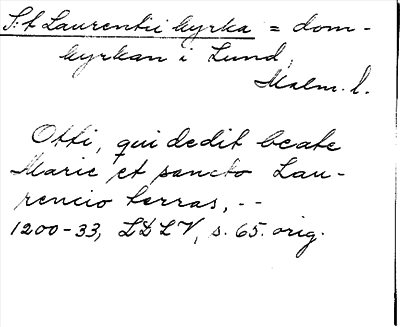 S:t Laurentii kyrka = dom-
kyrkan i Lund,
Malm. l.
Otti, qui dedit beate
Marie et sancto Lau-
rencio terras, --
1200-33, LDLV, s. 65. orig.